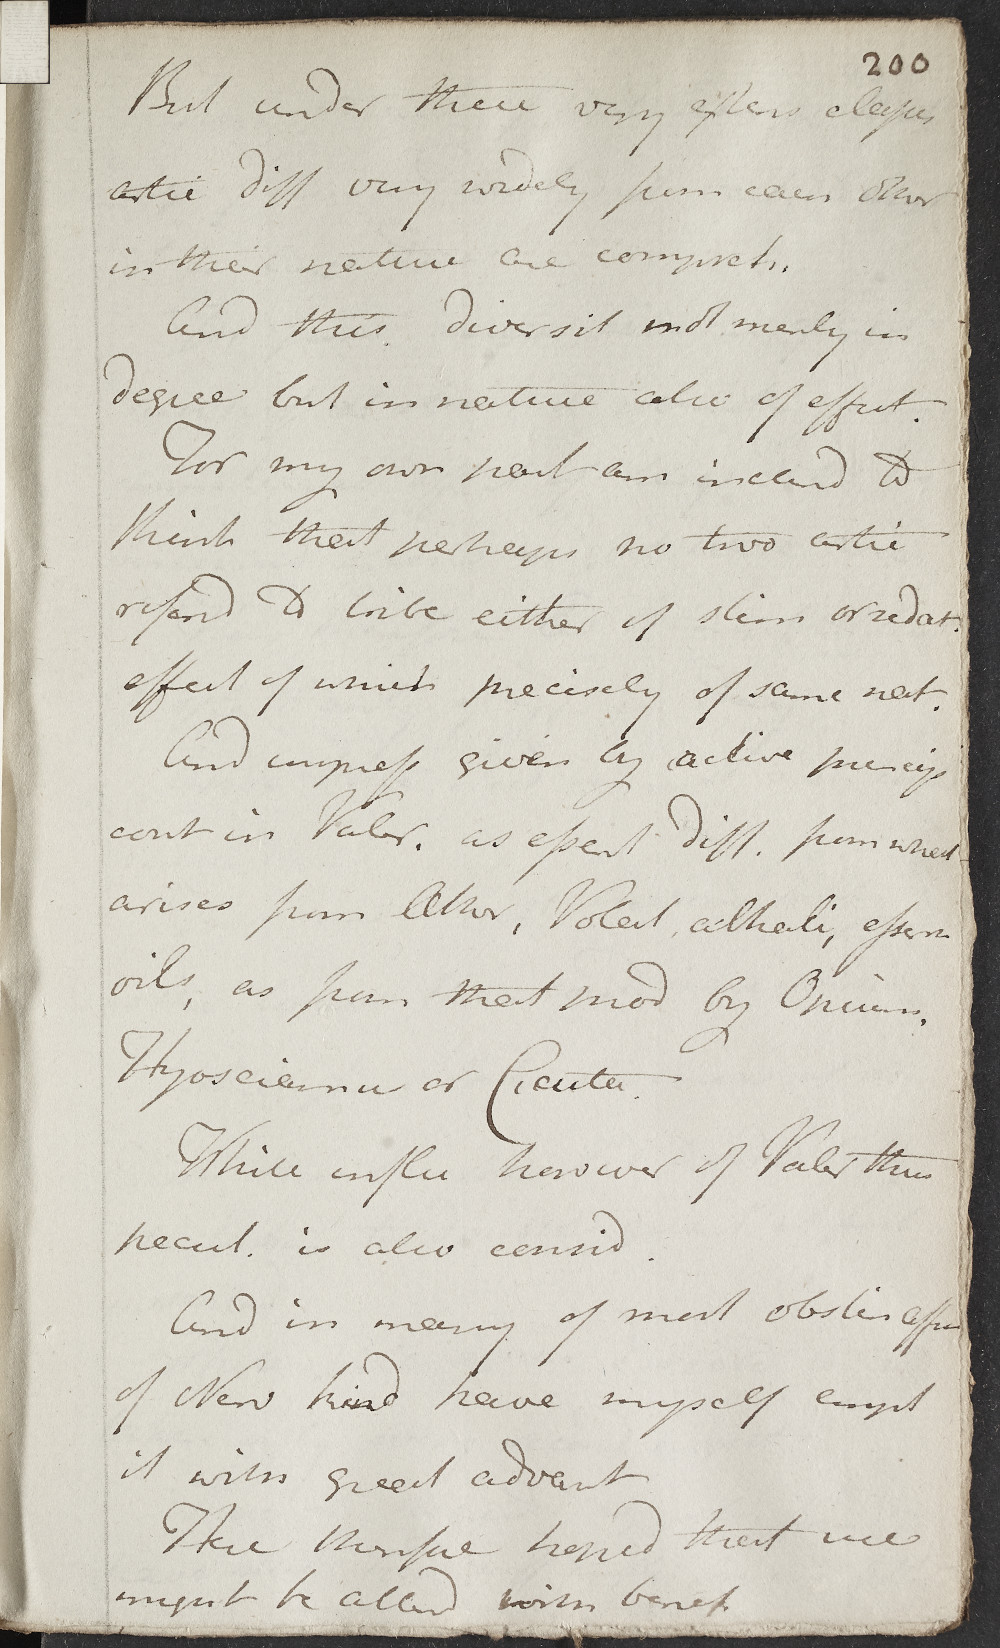 200
But under these very extens classes
artic diff very widely from each other
in their nature are compreh.
And this diversit not merely in
degree but in nature also of effect.
For my own part am inclind to
think that perhaps no two artic
referd to tribe either of stim or sedat.
effect of which precisely of same nat.
And impress given by active princip
cont in Valer. as essent diff. from what
arises from Æther, Volat. alkali, essen
oils, as from that prod by Opium,
Hyosciamu or Cicuta.
While influ however of Valer thus
pecul. is also consid.
And in many of most obstin affec
of Nerv kind have myself empl
it with great advant
Here therefore hoped that use
might be attend with benef.